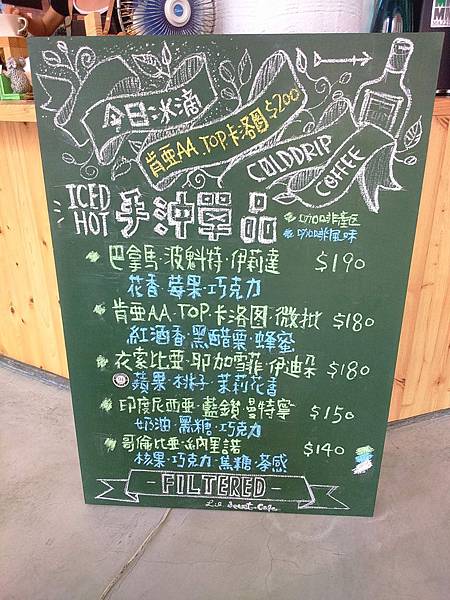 今日冰滴
肯亜AA.TOP卡洛圖$200
COLDDRIP
COFFEE
ICED
HOT
手沖單品
咖啡產区
咖啡風味
巴拿馬·波魁特·伊莉達 $190
花香·莓果·巧克力
肯亜AA.TOP.卡洛图·微批 $180
紅酒香·黑醋栗·蜂蜜
衣索比亜·耶加雪菲·伊迪朵 $180
蘋果·桃子·茉莉花香
印度尼西亜·藍鎖·曼特寧 $150
奶油·黑糖·巧克力
哥倫比亜·納里諾 $140
核果·巧克力·焦糖·茶感
-FILTERED-